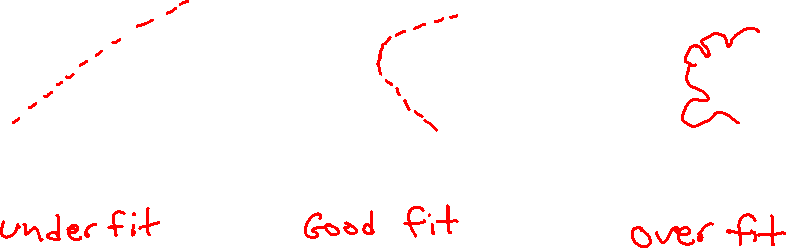 under fit Good fit over fit